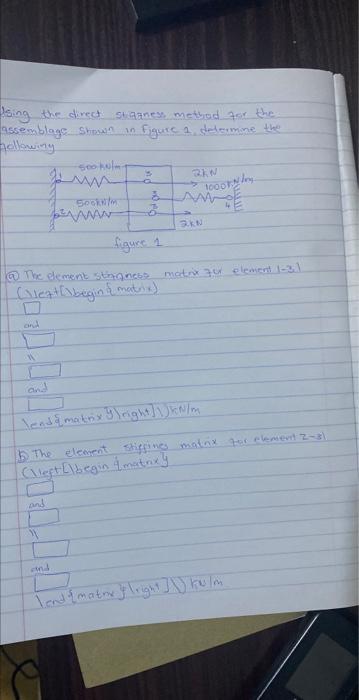 Using the direct stiffness method for the
assemblage shown in figure 1, determine the
following
500kN/m 3 2kN
1 1000kN/m
500kN/m 3
2 3 4
2kN
figure 1
a) The element stiffness matrix for element 1-3)
(\left[\begin{matrix}
and
\\
and
\end{matrix}\right]\)kN/m
b) The element stiffines matrix for element 2-3)
(\left[\begin{matrix}
and
\\
and
\end{matrix}\right]\) kN/m